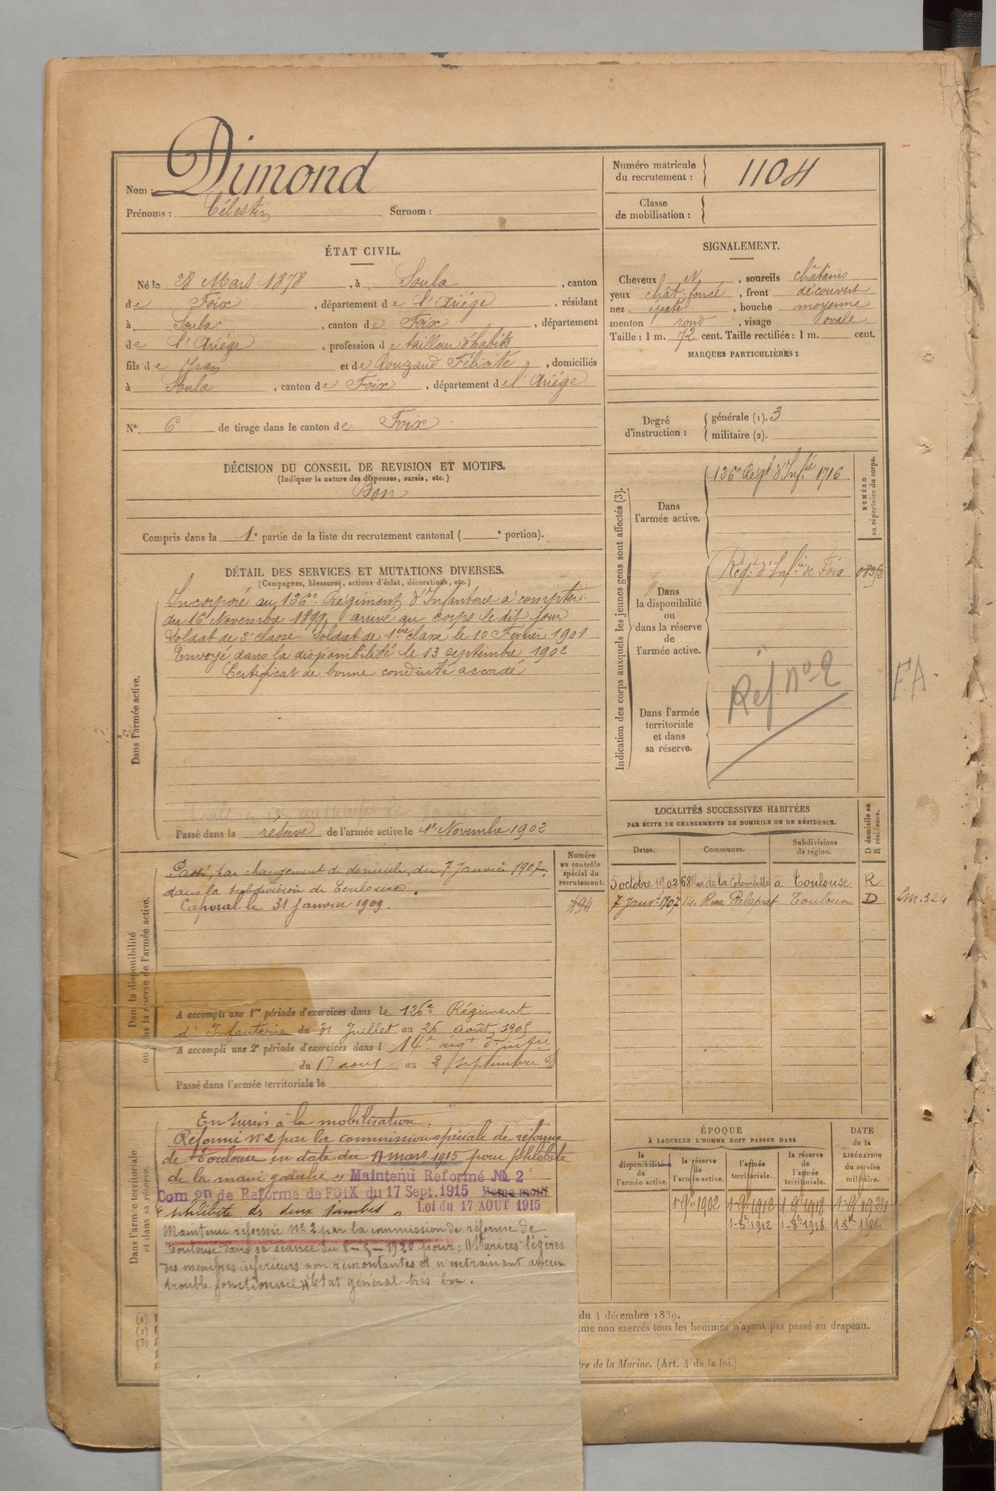 Nom : Dimond
Prénoms : Célestin Surnom :
Numéro matricule du recrutement : 1104
Classe de mobilisation :
ÉTAT CIVIL.
Né le 28 Mars 1878, à Soula, canton
de Foix, département de l'Ariège, résidant
à Soula, canton de Foix, département
de l'Ariège, profession de tailleur d'habits
fils de Jean et de Rouzaud Félicité, domiciliés
à Soula, canton de Foix, département de l'Ariège
N° 6 de tirage dans le canton de Foix
SIGNALEMENT.
Cheveux N, sourcils châtains
yeux chât foncé, front découvert
nez épaté, bouche moyenne
menton rond, visage ovale
Taille : 1 m. 72 cent. Taille rectifiée : 1 m. cent.
MARQUES PARTICULIÈRES :
Degré d'instruction : générale (1). 3
militaire (2).
DÉCISION DU CONSEIL DE REVISION ET MOTIFS.
(Indiquer la nature des dispenses, sursis, etc.)
Bon
Compris dans la 1e partie de la liste du recrutement cantonal ( e portion).
DÉTAIL DES SERVICES ET MUTATIONS DIVERSES.
(Campagnes, blessures, actions d'éclat, décorations, etc.)
Dans l'armée active.
Incorporé au 126e Régiment d'Infanterie à compter
du 16 Novembre 1899, arrivé au corps le dit jour
Soldat de 2e classe Soldat de 1ère classe le 10 Février 1901
Envoyé dans la disponibilité le 13 septembre 1902
Certificat de bonne conduite accordé
Passé dans la réserve de l'armée active le 1er Novembre 1902
Indication des corps auxquels les jeunes gens sont affectés (3).
NUMÉRO au répertoire du corps.
Dans l'armée active.
126e Régt d'Infie 1716
Dans la disponibilité ou dans la réserve de l'armée active.
Régt d'Infie de Foix
Dans l'armée territoriale et dans sa réserve.
Réf n° 2
FA.
LOCALITÉS SUCCESSIVES HABITÉES
PAR SUITE DE CHANGEMENTS DE DOMICILE OU DE RÉSIDENCE.
D domicile ou R résidence.
Dates. Communes. Subdivisions de région.
5 octobre 1903 68 Rue de la Colombette à Toulouse R
7 Janv. 1907 14 Rue Palaprat Toulouse D
Dans la disponibilité ou dans la réserve de l'armée active.
Numéro au contrôle spécial du recrutement.
494
Passé, par changement de domicile, du 7 Janvier 1907,
dans la subdivision de Toulouse.
Caporal le 31 janvier 1909
A accompli une 1re période d'exercices dans le 126e Régiment
d'Infanterie du 31 Juillet au 26 août 1905
A accompli une 2e période d'exercices dans l 14e regt d'infie
du 17 août au 2 septembre
Passé dans l'armée territoriale le
Dans l'armée territoriale et dans sa réserve.
En sursis à la mobilisation.
Réformé n° 2 par la commission spéciale de réforme
de Toulouse en date du mars 1915 pour phlébite
de la main gauche » Maintenu Réformé No 2
Com on de Réforme de FOIX du 17 Sept. 1915
Loi du 17 AOUT 1915
phlébite des deux jambes
Maintenu réformé N° 2 par la commission de réforme de
Toulouse dans sa séance du 1920 pour : Varices légères
des membres inférieurs non remontantes et n'entrainant aucun
trouble fonctionnel état général très bon.
ÉPOQUE
À LAQUELLE L'HOMME DOIT PASSER DANS
DATE de la LIBÉRATION du service militaire.
la disponibilité de l'armée active. la réserve de l'armée active. l'armée territoriale. la réserve de l'armée territoriale.
1-9bre 1902 1-9bre 1912 1-9bre 1918 1-9bre 1924
du 4 décembre 1889.
me non exercés tous les hommes n'ayant pas passé au drapeau.
tre de la Marine. (Art. 4 de la loi.)